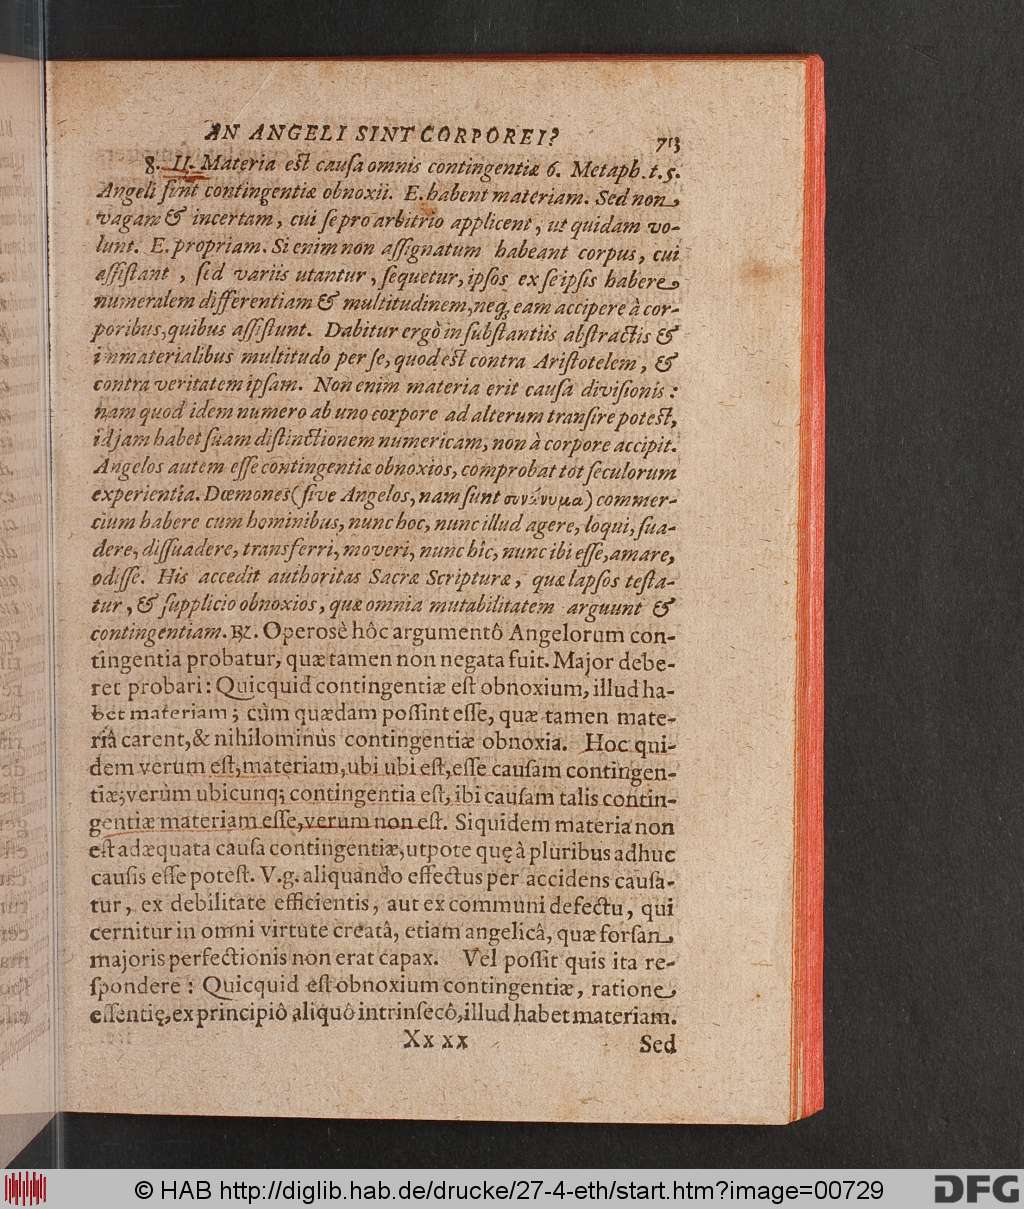 AN ANGELI SINT CORPOREI? 713
8. II. Materia est causa omnis contingentiæ 6. Metaph. t. 5.
Angeli sunt contingentiæ obnoxii. E. habent materiam. Sed non
vagam & incertam, cui se pro arbitrio applicent, ut quidam vo-
lunt. E. propriam. Si enim non assignatum habeant corpus, cui
assistant, sed variis utantur, sequetur, ipsos ex seipsis habere
numeralem differentiam & multitudinem, neq; eam accipere à cor-
poribus, quibus assistunt. Dabitur ergò in substantiis abstractis &
inmaterialibus multitudo per se, quod est contra Aristotelem, &
contra veritatem ipsam. Non enim materia erit causa divisionis:
nam quod idem numero ab uno corpore ad alterum transire potest,
id jam habet suam distinctionem numericam, non à corpore accipit.
Angelos autem esse contingentiæ obnoxios, comprobat tot seculorum
experientia. Dœmones (sive Angelos, nam sunt συνώνυμα) commer-
cium habere cum hominibus, nunc hoc, nunc illud agere, loqui, sua-
dere, dissuadere, transferri, moveri, nunc hîc, nunc ibi esse, amare,
odisse. His accedit authoritas Sacræ Scripturæ, quæ lapsos testa-
tur, & supplicio obnoxios, quæ omnia mutabilitatem arguunt &
contingentiam. ℞. Operosè hôc argumentô Angelorum con-
tingentia probatur, quæ tamen non negata fuit. Major debe-
ret probari: Quicquid contingentiæ est obnoxium, illud ha-
bet materiam; cùm quædam possint esse, quæ tamen mate-
riâ carent, & nihilominùs contingentiæ obnoxia. Hoc qui-
dem verum est, materiam, ubi ubi est, esse causam contingen-
tiæ; verùm ubicunq; contingentia est, ibi causam talis contin-
gentiæ materiam esse, verum non est. Siquidem materia non
est adæquata causa contingentiæ, utpote quę à pluribus adhuc
causis esse potest. V. g. aliquando effectus per accidens causa-
tur, ex debilitate efficientis, aut ex communi defectu, qui
cernitur in omni virtute creatâ, etiam angelicâ, quæ forsan
majoris perfectionis non erat capax. Vel possit quis ita re-
spondere: Quicquid est obnoxium contingentiæ, ratione
essentię, ex principiô aliquô intrinsecô, illud habet materiam.
Xx xx Sed
© HAB http://diglib.hab.de/drucke/27-4-eth/start.htm?image=00729 DFG